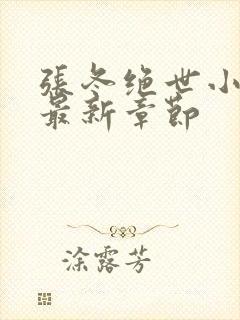 張冬绝世小
最新章節
涂露芳